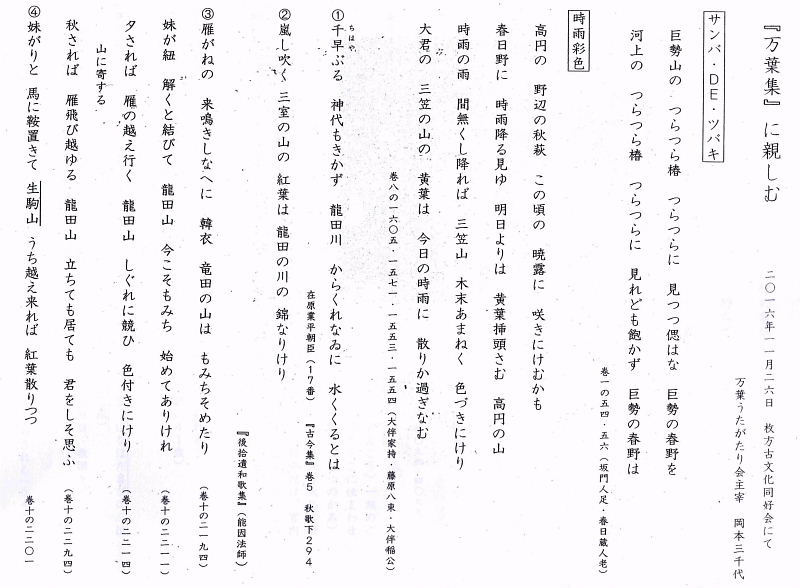 『万葉集』に親しむ
二〇一六年一一月二六日　枚方古文化同好会にて
万葉うたがたり会主宰　岡本三千代
サンバ・ＤＥ・ツバキ
巨勢山の　つらつら椿　つらつらに　見つつ偲はな　巨勢の春野を
河上の　つらつら椿　つらつらに　見れども飽かず　巨勢の春野は
巻一の五四・五六（坂門人足・春日蔵人老）
時雨彩色
高円の　野辺の秋萩　この頃の　暁露に　咲きにけむかも
春日野に　時雨降る見ゆ　明日よりは　黄葉挿頭さむ　高円の山
時雨の雨　間無くし降れば　三笠山　木末あまねく　色づきにけり
大君の　三笠の山の　黄葉は　今日の時雨に　散りか過ぎなむ
巻八の一六〇五・一五七一・一五五三・一五五四（大伴家持・藤原八束・大伴稲公）
①千早ぶる　神代もきかず　龍田川　からくれなゐに　水くくるとは
ちはや
在原業平朝臣（１７番）　『古今集』巻５　秋歌下２９４
②嵐し吹く　三室の山の　紅葉は　龍田の川の　錦なりけり
『後拾遺和歌集』（能因法師）
③雁がねの　来鳴きしなへに　韓衣　竜田の山は　もみちそめたり　（巻十の二一九四）
妹が紐　解くと結びて　龍田山　今こそもみち　始めてありけれ　（巻十の二二一一）
夕されば　雁の越え行く　龍田山　しぐれに競ひ　色付きにけり　（巻十の二二一四）
山に寄する
秋されば　雁飛び越ゆる　龍田山　立ちても居ても　君をしそ思ふ　（巻十の二二九四）
④妹がりと　馬に鞍置きて　生駒山　うち越え来れば　紅葉散りつつ　巻十の二二〇一